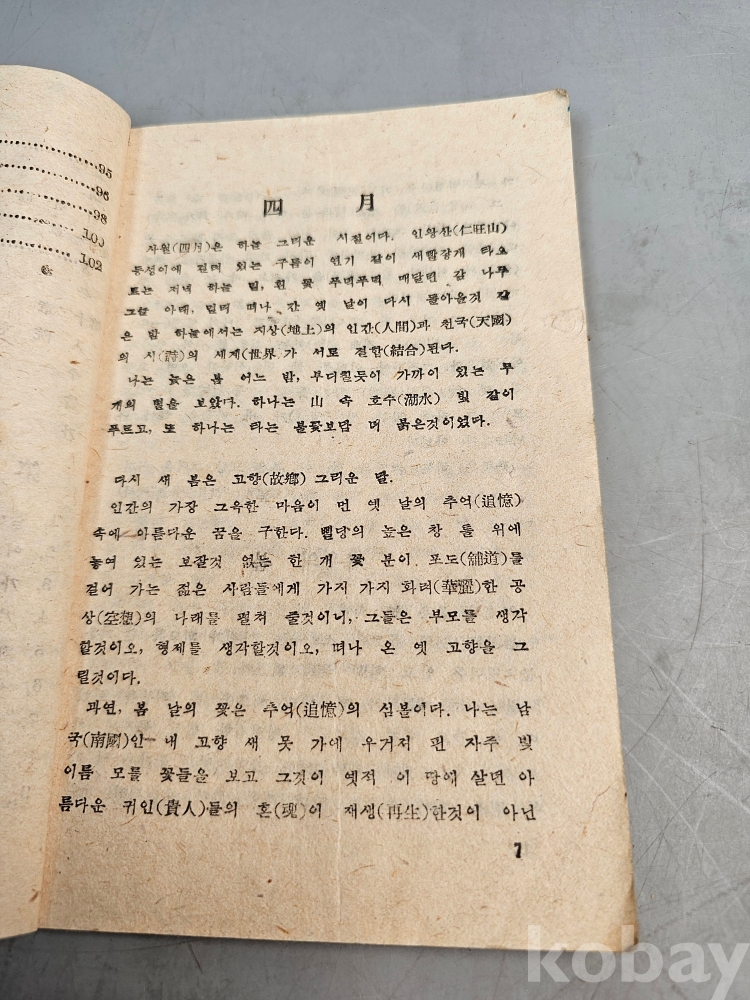 95
96
98
100
102
四 月
사월(四月)은 하늘 그리운 시절이다. 인왕산(仁旺山)
등성이에 걸려 있는 구름이 연기 같이 새빨갛게 타오
르는 저녁 하늘 밑, 흰 꽃 무덕무덕 매달면 감 나무
그늘 아래, 멀리 떠나 간 옛 날이 다시 돌아올것 같
은 밤 하늘에서는 지상(地上)의 인간(人間)과 천국(天國)
의 시(詩)의 세계(世界)가 서로 결합(結合)된다.
나는 늦은 봄 어느 밤, 부디칠듯이 가까이 있는 두
개의 별을 보았다. 하나는 山 속 호수(湖水) 빛 같이
푸르고, 또 하나는 타는 불꽃보담 더 붉은것이었다.
다시 새 봄은 고향(故鄕) 그리운 달.
인간의 가장 그윽한 마음이 먼 옛 날의 추억(追憶)
속에 아름다운 꿈을 구한다. 삘딩의 높은 창 틀 위에
놓여 있는 보잘것 없는 한 개 꽃 분이 포도(舖道)를
걸어 가는 젊은 사람들에게 가지 가지 화려(華麗)한 공
상(空想)의 나래를 펼쳐 줄것이니, 그들은 부모를 생각
할것이오, 형제를 생각할것이오, 떠나 온 옛 고향을 그
릴것이다.
과연, 봄 날의 꽃은 추억(追憶)의 심볼이다. 나는 남
국(南國)인 내 고향 새 못 가에 우거져 핀 자주 빛
이름 모를 꽃들을 보고 그것이 옛적 이 땅에 살면 아
름다운 귀인(貴人)들의 혼(魂)이 재생(再生)한것이 아닌
7
kobay